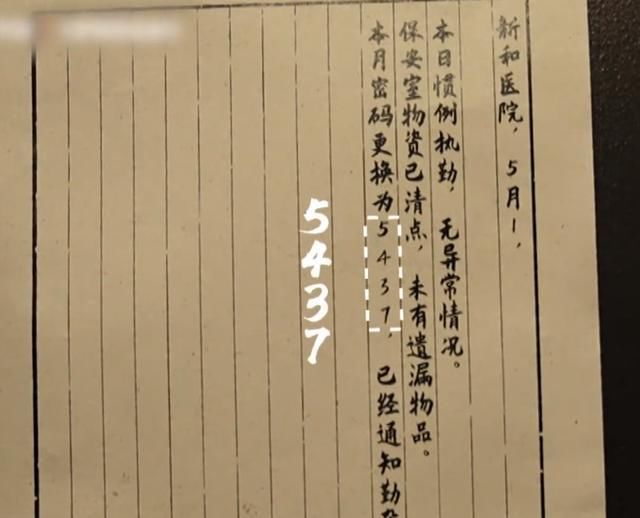 新和医院，5月1，
本日惯例执勤，无异常情况。
保安室物资已清点，未有遗漏物品。
本月密码更换为5437，已经通知勤
5437